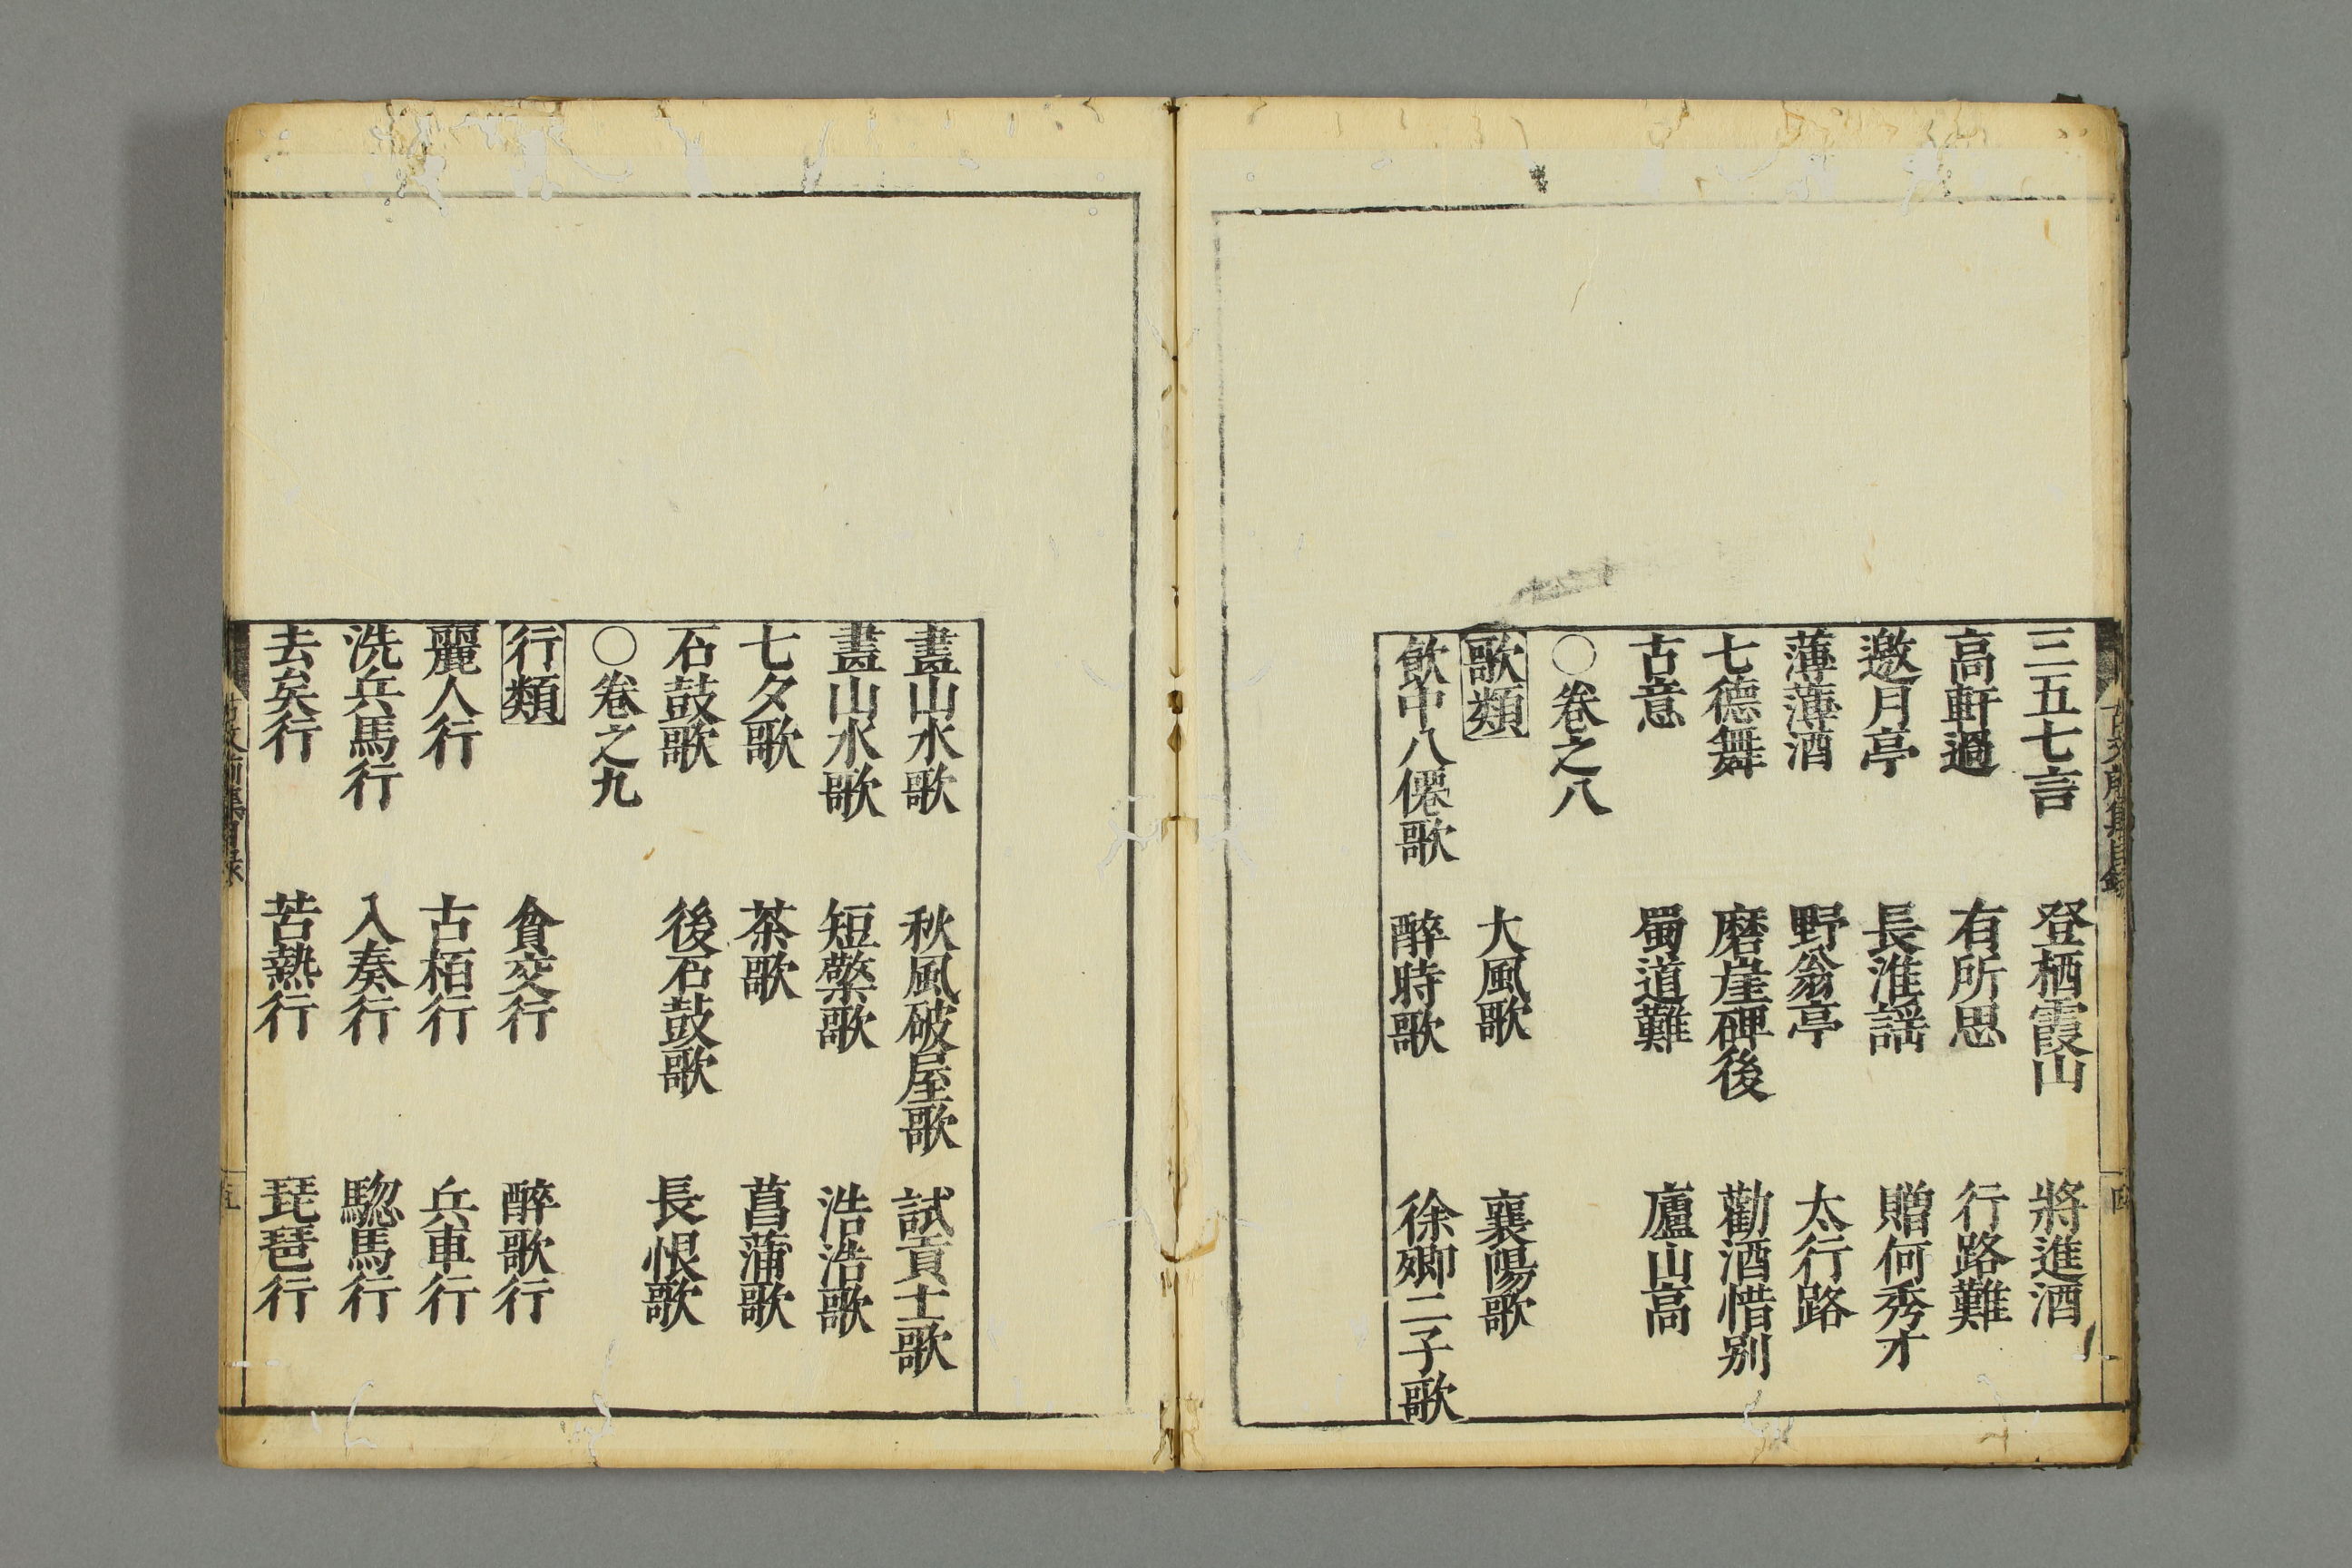 三五七言　登栖霞山　將進酒
高軒過　有所思　行路難
邀月亭　長淮謡　贈何秀才
薄薄酒　野翁亭　太行路
七德舞　磨崖碑後　勸酒惜别
古意　蜀道難　廬山高
〇卷之八
歌類　大風歌　襄陽歌
飲中八僊歌　醉時歌　徐卿二子歌
畫山水歌　秋風破屋歌　試貢士歌
畫山水歌　短檠歌　浩浩歌
七夕歌　茶歌　菖蒲歌
石鼓歌　後石鼓歌　長恨歌
〇卷之九
行類　貧交行　醉歌行
麗人行　古栢行　兵車行
洗兵馬行　入奏行　驄馬行
去矣行　苦熱行　琵琶行
古文前集目録